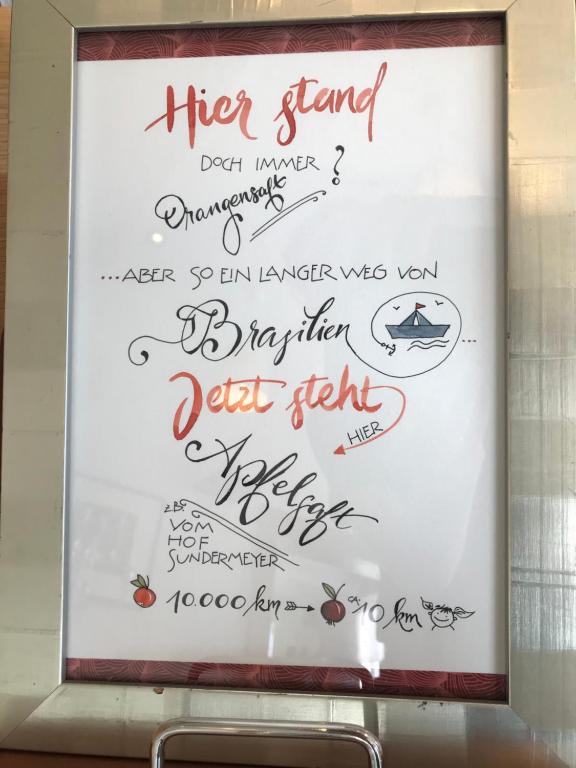 Hier stand
DOCH IMMER ?
Orangensaft
...ABER SO EIN LANGER WEG VON
Brasilien ...
Jetzt steht
HIER
Apfelsaft
z.B.
VOM
HOF
SUNDERMEYER
10.000 km → CA. 10 km